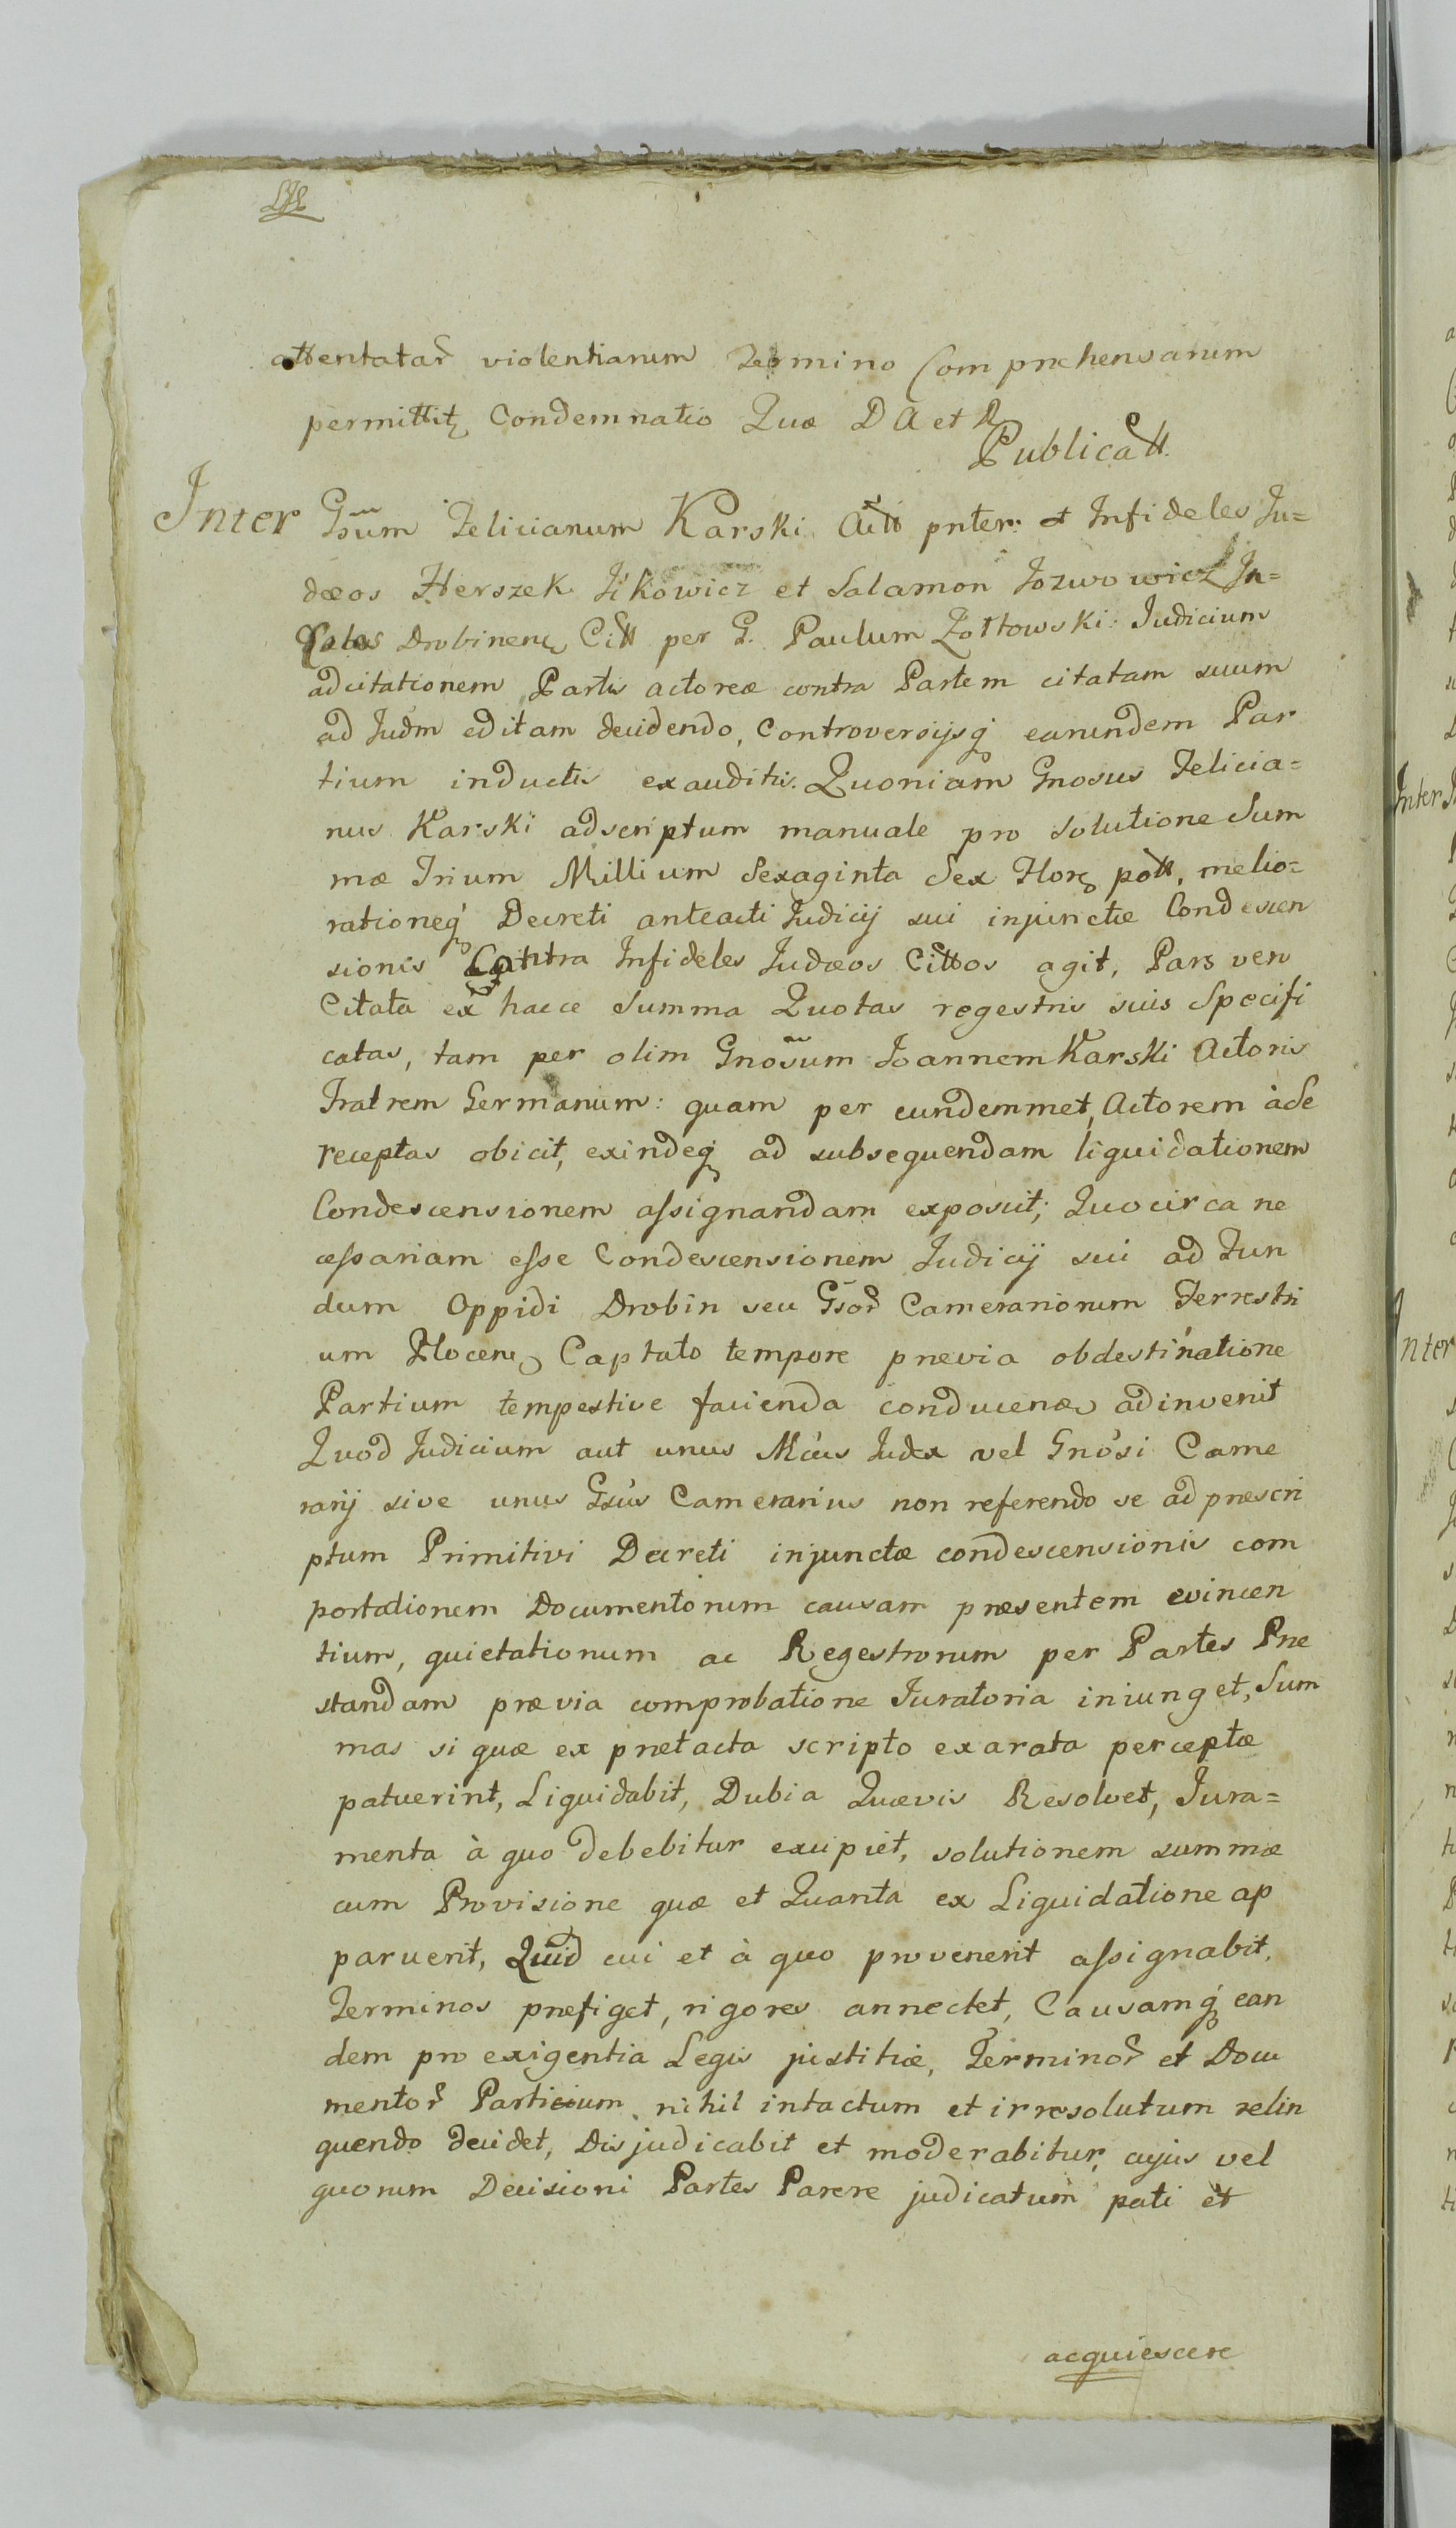 attentatar violentiarum Termino Comprehensarum
permittitq Condemnatio Quæ D A et R
Publicatt.
Inter Gsum Felicianum Karski Actt pnter: et Infideles Ju=
dæos Herszek Ikowicz et Salamon Jozwowicz In=
colas Drobinens Citt per G. Paulum Żołtowski: Judicium
ad citationem Partis actoreæ contra Partem citatam suum
ad Judm editam decidendo, Controversijsq earundem Par
tium inductis exauditis. Quoniam Gnosus Felicia=
nus Karski ad scriptum manuale pro Solutione Sum
mæ Trium Millium Sexaginta Sex Flor poll, melio=
rationeq Decreti anteacti Judicij sui injunctæ Condescen
sionis Contra Infideles Judæos Cittos agit, Pars vero
Citata ex hacce Summa Quotas regestris suis Specifi
catas, tam per olim Gnosum Joannem Karski Actoris
Fratrem Germanum: quam per eundemmet Actorem à Se
receptas obicit, exindeq ad subsequendam liquidationem
Condescensionem assignandam exposcit; Quocirca ne
cessariam esse Condescensionem Judicij sui ad Fun
dum Oppidi Drobin seu Gsor Camerariorum Terrestri
um Plocens Captato tempore prævia obdestinatione
Partium tempestive facienda conducens adinvenit
Quod Judicium aut unus Mcus Judex vel Gnosi Came
rarij sive unus Gsus Camerarius non referendo se ad præscri
ptum Primitivi Decreti injunctæ condescensionis com
portationem Documentorum causam præsentem evincen
tium, quietationum ac Regestrorum per Partes Præ
standam prævia comprobatione Juratoria iniunget, Sum
mas si quæ ex prætacta scripto exarata perceptæ
patuerint, Liquidabit, Dubia Quævis Resolvet, Jura=
menta à quo debebitur excipiet, solutionem summæ
cum Provisione quæ et Quanta ex Liquidatione ap
paruerit, Quid cui et à quo provenerit assignabit,
Terminos præfiget, rigores annectet, Causamq ean
dem pro exigentia Legis justitiæ, Terminor et Docu
mentor Partium nihil intactum et irresolutum relin
quendo decidet, Disjudicabit et moderabitur, cujus vel
quorum Decisioni Partes Parere judicatum pati et
acquiescere